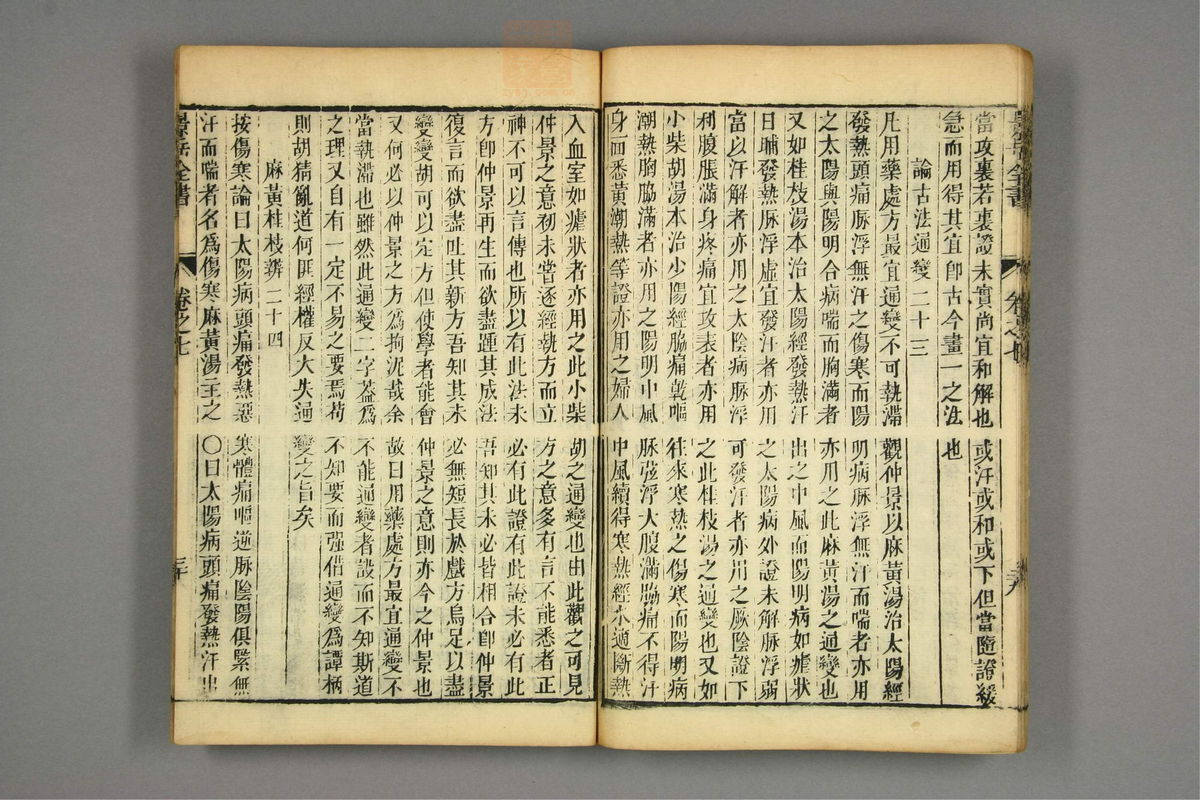 當攻裏若裏證未實尚宜和解也或汗或和或下但當隨證緩
急而用得其宜卽古今畫一之法也
論古法通變二十三
凡用藥處方最宜通變不可執滯觀仲景以麻黃湯治太陽經
發熱頭痛脈浮無汗之傷寒而陽明病脈浮無汗而喘者亦用
之太陽與陽明合病喘而胸滿者亦用之此麻黃湯之通變也
又如桂枝湯本治太陽經發熱汗出之中風而陽明病如瘧狀
日晡發熱脈浮虛宜發汗者亦用之太陽病外證未解脈浮弱
當以汗解者亦用之太陰病脈浮可發汗者亦用之厥陰證下
利腹脹滿身疼痛宜攻表者亦用之此桂枝湯之通變也又如
小柴胡湯本治少陽經脇痛乾嘔往來寒熱之傷寒而陽明病
潮熱胸脇滿者亦用之陽明中風脈弦浮大腹滿脇痛不得汗
身面悉黃潮熱等證亦用之婦人中風續得寒熱經水適斷熱
入血室如瘧狀者亦用之此小柴胡之通變也由此觀之可見
仲景之意初未嘗逐經執方而立方之意多有言不能悉者正
神不可以言傳也所以有此法未必有此證有此證未必有此
方卽仲景再生而欲盡踵其成法吾知其未必皆相合卽仲景
復言而欲盡吐其新方吾知其未必無短長於戲方烏足以盡
變變胡可以定方但使學者能會仲景之意則亦今之仲景也
又何必以仲景之方爲拘泥哉余故曰用藥處方最宜通變不
當執滯也雖然此通變二字葢爲不能通變者設而不知斯道
之理又自有一定不易之要焉苟不知要而强借通變爲譚柄
則胡猜亂道何匪經權反大失通變之旨矣
麻黃桂枝辨二十四
按傷寒論曰太陽病頭痛發熱惡寒體痛嘔逆脈陰陽俱緊無
汗而喘者名爲傷寒麻黃湯主之〇曰太陽病頭痛發熱汗出
景岳全書
卷之七
三十